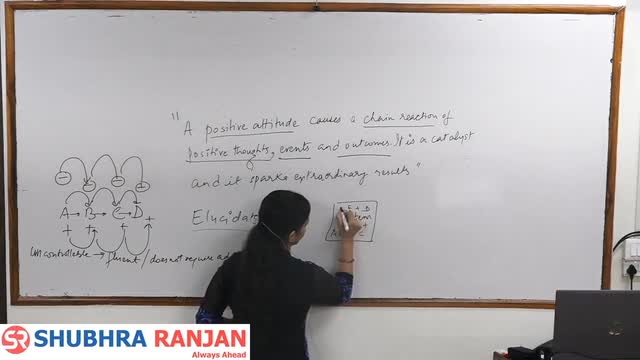 "A positive attitude causes a chain reaction of
positive thoughts, events and outcomes. It is a catalyst
and it sparks extraordinary results"
Elucidate
− − − −
A → B → C → D +
+ + +
uncontrollable → fluent / does not require
E + D
SR SHUBHRA RANJAN
Always Ahead